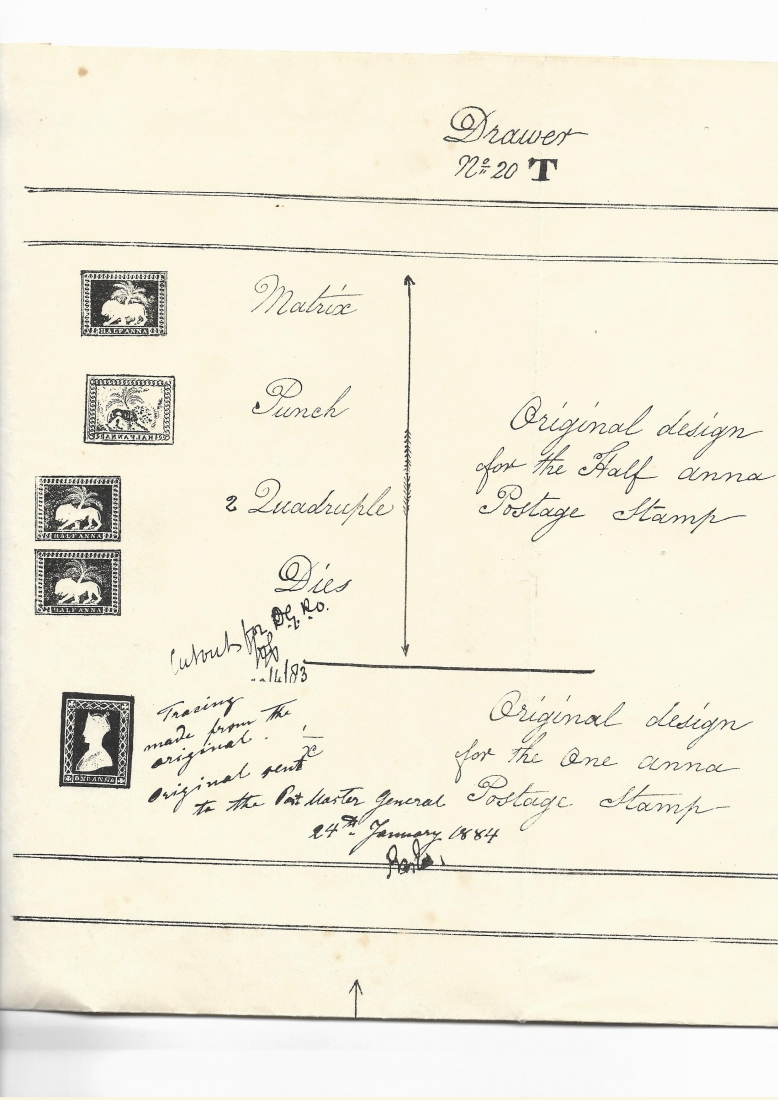 Drawer
No 20 T
HALF ANNA
Matrix
HALF ANNA
Punch
HALF ANNA
2 Quadruple
HALF ANNA
Dies
Original design
for the Half anna
Postage Stamp
Cutouts for
14/83
Tracing
made from the
original.
Original sent
to the Post Master General
24th January 1884
ONE ANNA
Original design
for the One anna
Postage Stamp